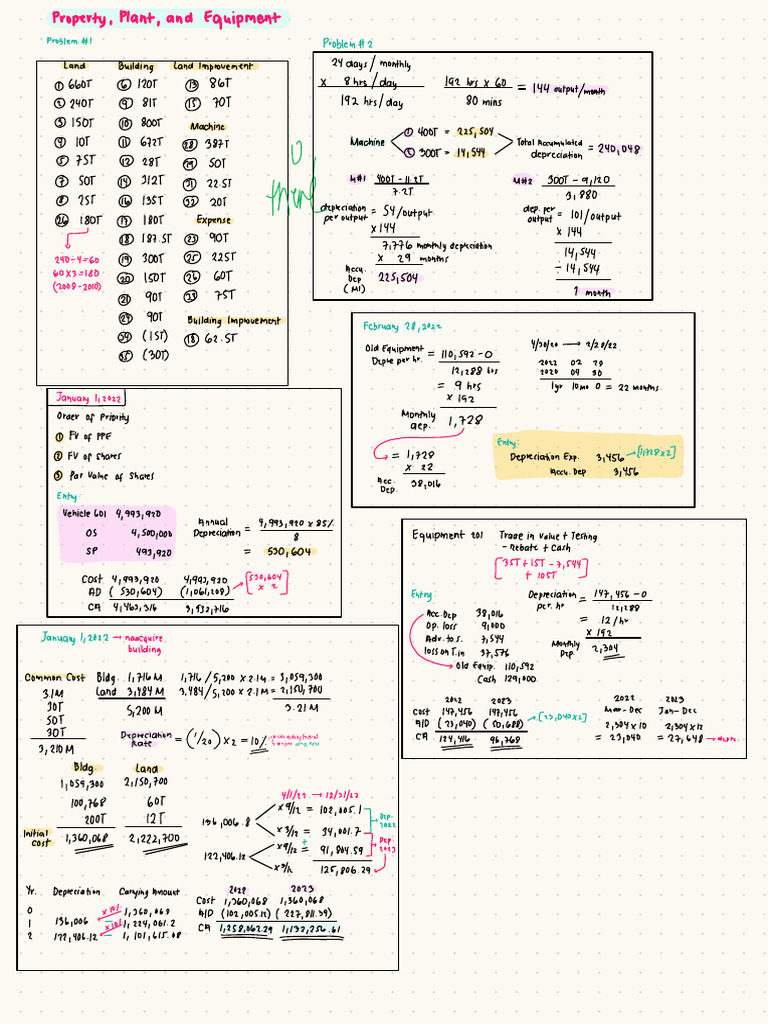 Property, Plant, and Equipment
Problem #1
Land
① 660T
② 240T
③ 150T
④ 10T
⑤ 75T
⑦ 50T
⑧ 25T
㉖ 180T
240 ÷ 4 = 60
60 x 3 = 180
(2008 - 2010)
Building
⑥ 120T
⑨ 81T
⑩ 800T
⑪ 672T
⑫ 28T
⑭ 312T
⑯ 135T
⑰ 180T
⑱ 187.5T
⑲ 300T
⑳ 150T
㉑ 90T
㉙ 90T
(15T)
(30T)
Land Improvement
⑬ 86T
⑮ 70T
Machine
㉘ 387T
50T
㉛ 22.5T
20T
Expense
㉓ 90T
㉕ 225T
㉖ 60T
75T
Building Improvement
⑱ 62.5T
Problem # 2
24 days / monthly
x 8 hrs / day
192 hrs / day
192 hrs x 60
80 mins
= 144 output/month
Machine
① 400T = 225,504
② 300T = 14,544
Total Accumulated
depreciation = 240,048
M#1 400T - 11.2T
7.2T
depreciation
per output = 54/output
x 144
7,776 monthly depreciation
x 29 months
Accu.
Dep
(M1) 225,504
M#2 300T - 9,120
3,880
dep. per
output = 101/output
x 144
14,544
÷ 14,544
1 month
February 28, 2022
Old Equipment
Depre per hr. = 110,592 - 0
12,288 hrs
= 9 hrs
x 192
Monthly
dep. 1,728
= 1,728
x 22
Acc.
Dep. 38,016
4/30/20 → 2/28/22
2022 02
2020 04 30
1yr 10mo 0 = 22 months
Entry:
Depreciation Exp. 3,456 → [1,728 x 2]
Accu. Dep 3,456
January 1, 2022
Order of Priority
① FV of PPE
② FV of shares
③ Par Value of Shares
Entry:
Vehicle 601 4,993,920
OS 4,500,000
SP 493,920
Annual
Depreciation = 4,993,920 x 85%
8
= 530,604
Cost 4,993,920 4,993,920
AD (530,604) (1,061,208)
CA 4,463,316 3,932,716
[530,604
x 2]
Equipment 201 Trade in Value + Testing
- Rebate + Cash
[35T + 15T - 7,544
+ 105T]
Entry:
Acc. Dep 38,016
Op. loss 9,000
Adv. to S. 7,544
loss on T.in 37,576
Old Equip. 110,592
Cash 129,000
Depreciation
per. hr = 147,456 - 0
12,288
= 12 / hr
x 192
Monthly
Dep. 2,304
2022 2023
Cost 147,456 147,456
A/D (23,040) (50,688)
CA 124,416 96,768
[23,040 x 2]
2022 2023
Mar - Dec Jan - Dec
2,304 x 10 2,304 x 12
= 23,040 = 27,648 → depre.
January 1, 2022 →
building
Common Cost
3.1M
30T
50T
30T
3,210 M
Bldg. 1,716 M 1,716 / 5,200 x 2.1M = 1,059,300
Land 3,484 M 3,484 / 5,200 x 2.1M = 2,150,700
5,200 M 3.21 M
Depreciation
Rate = (1/20) x 2 = 10%
Bldg. Land
1,059,300 2,150,700
100,768 60T
200T 12T
Initial
cost 1,360,068 2,222,700
4/1/22 → 12/31/22
136,006.8
x 9/12 = 102,005.1
x 3/12 = 34,001.7
122,406.12
x 9/12 = + 91,804.59
x 3/12
125,806.29
Dep.
2022
Dep.
2023
Yr. Depreciation Carrying Amount
0 1,360,068
1 136,006 x 10% 1,224,061.2
2 122,406.12 x 10% 1,101,615.08
2022 2023
Cost 1,360,068 1,360,068
A/D (102,005.12) (227,811.39)
CA 1,258,062.29 1,132,256.61